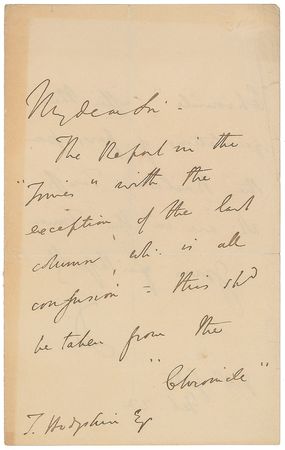 My dear Sir -
The Report in the
"Times" with the
exception of the last
column, whi. is all
confusion = this shd
be taken from the
"Chronicle"
T. Hodgskin Esq